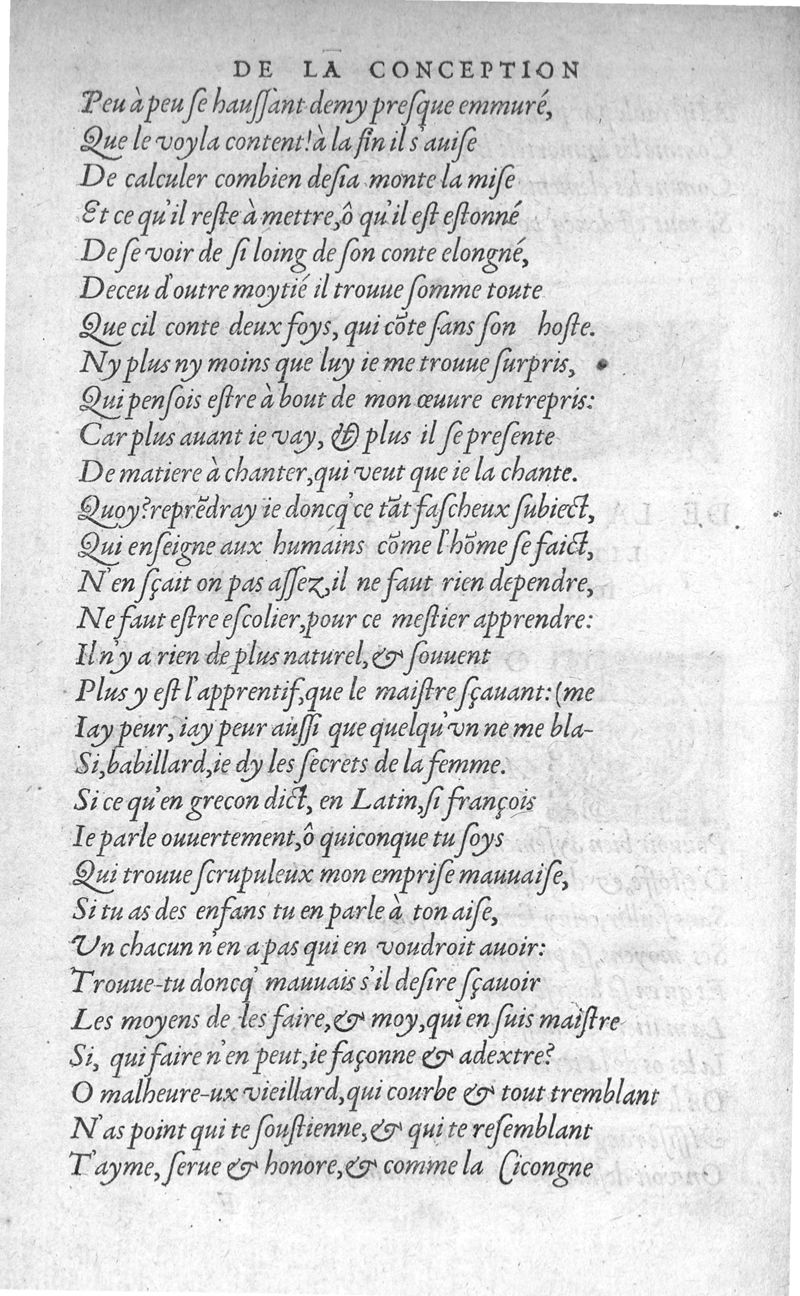 DE LA CONCEPTION
Peu à peu se haussant demy presque emmuré,
Que le voyla content! à la fin il s'auise
De calculer combien desia monte la mise
Et ce qu'il reste à mettre, ô qu'il est estonné
De se voir de si loing de son conte elongné,
Deceu d'outre moytié il trouue somme toute
Que cil conte deux foys, qui cõte sans son hoste.
Ny plus ny moins que luy ie me trouue surpris,
Qui pensois estre à bout de mon œuure entrepris:
Car plus auant ie vay, & plus il se presente
De matiere à chanter, qui veut que ie la chante.
Quoy? reprẽdray ie doncq' ce tãt fascheux subiect,
Qui enseigne aux humains cõme l'hõme se faict,
N'en sçait on pas assez, il ne faut rien dependre,
Ne faut estre escolier, pour ce mestier apprendre:
Il n'y a rien de plus naturel, & souuent
Plus y est l'apprentif, que le maistre sçauant: (me
Iay peur, iay peur aussi que quelqu'vn ne me bla-
Si, babillard, ie dy les secrets de la femme.
Si ce qu'en grec on dict, en Latin, si françois
Ie parle ouuertement, ô quiconque tu soys
Qui trouue scrupuleux mon emprise mauuaise,
Si tu as des enfans tu en parle à ton aise,
Un chacun n'en a pas qui en voudroit auoir:
Trouue-tu doncq' mauuais s'il desire sçauoir
Les moyens de les faire, & moy, qui en suis maistre
Si, qui faire n'en peut, ie façonne & adextre?
O malheure-ux vieillard, qui courbe & tout tremblant
N'as point qui te soustienne, & qui te resemblant
T'ayme, serue & honore, & comme la Cicongne